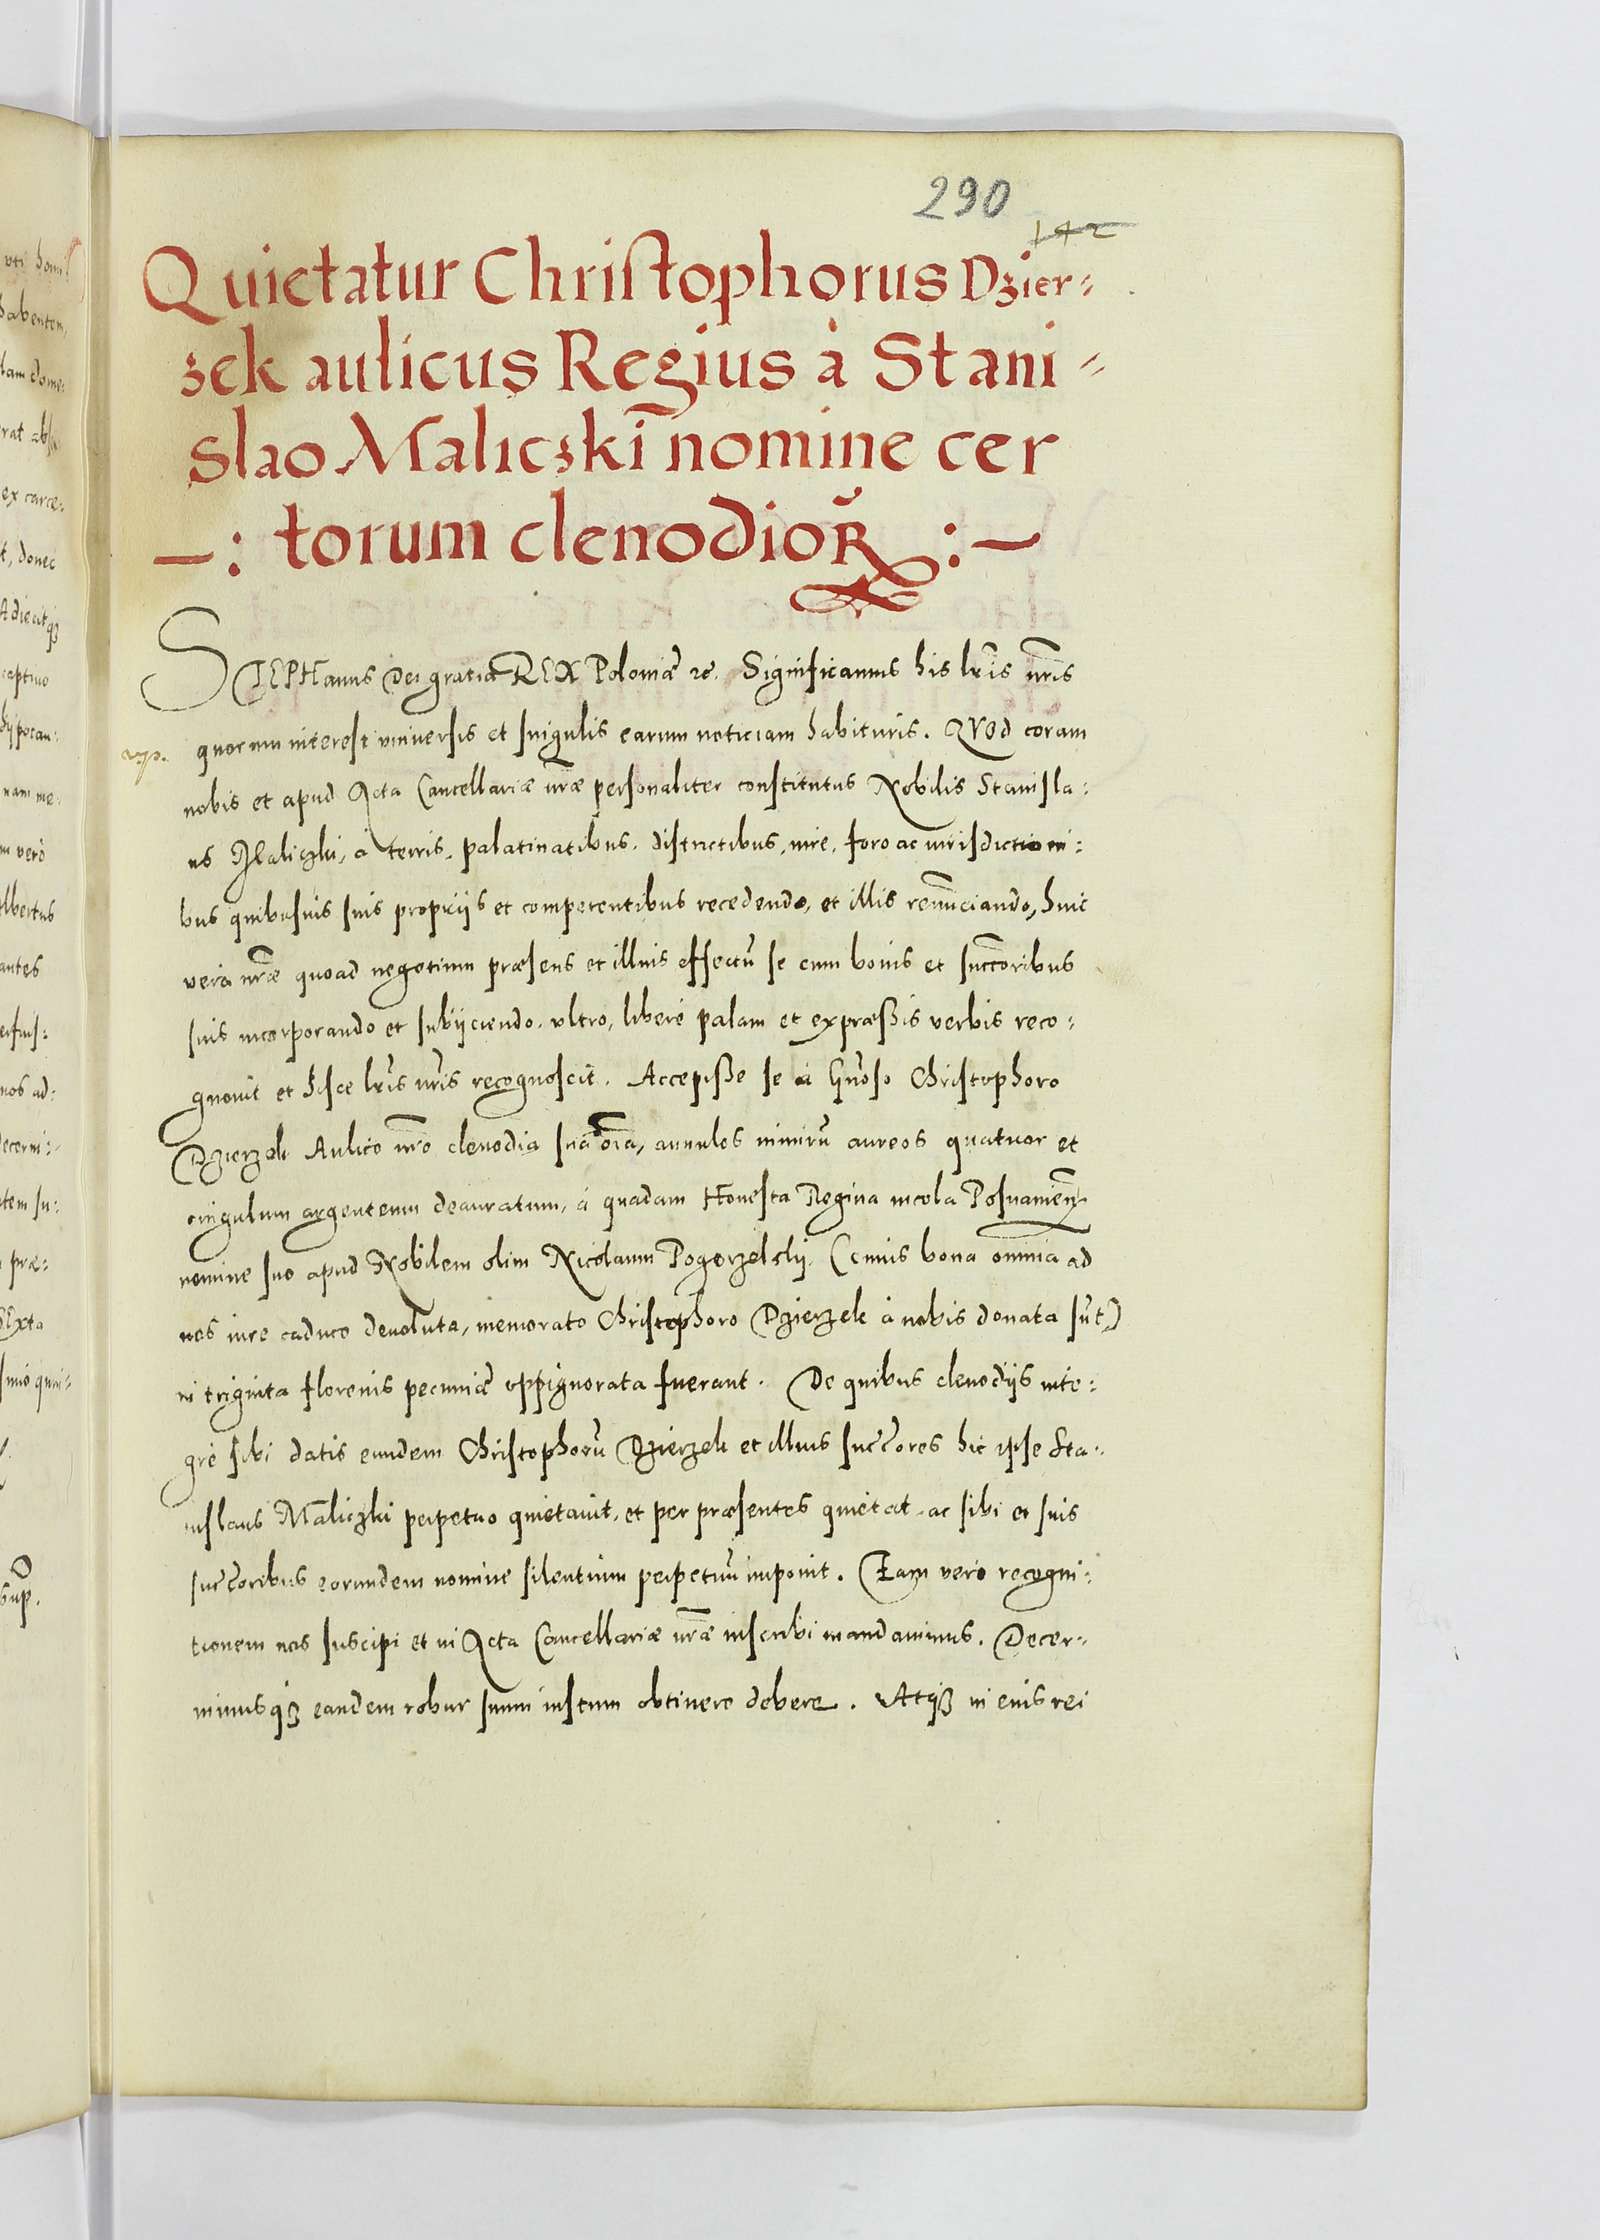 290
142
Quietatur Christophorus Dzier=
zek aulicus Regius à Stani=
slao Maliczkī nomine cer
—: torum clenodioꝝ :—
STEPHanus Dei gratia REX Poloniæ ꝛc. Significamus his lr̃is nr̃is
quorum interest vniuersis et singulis earum noticiam habituris. QVOd coram
nobis et apud Acta Cancellariæ nr̃æ personaliter constitutus Nobilis Stanisla=
us Maliczki, à terris, palatinatibus, districtibus, iure, foro ac iurisdictioni=
bus quibusuis suis proprijs et competentibus recedendo, et illis renũciando, huic
verò nr̃æ quoad negotium præsens et illius effectũ se cum bonis et succ̃oribus
suis incorporando et subijciendo, vltro, liberè palam et expræssis verbis reco=
gnouit et hisce lr̃is nr̃is recognoscit. Accepisse se à Gn̄oso Christophoro
Dzierzek Aulico nr̃o clenodia sua oĩa, annulos nimirũ aureos quatuor et
cingulum argenteum deauratum, à quadam Honesta Regina incola Posnanień
nomine suo apud Nobilem olim Nicolaum Pogorzelskij (cuius bona omnia ad
nos iure caduco deuoluta, memorato Christophoro Dzierzek à nobis donata sũt)
in triginta florenis pecuniæ oppignorata fuerant. De quibus clenodijs inte=
grè sibi datis eundem Christophorũ Dzierzek et illius succ̃ores hic ipse Sta=
nislaus Maliczki perpetuo quietauit, et per præsentes quietat, ac sibi et suis
succ̃oribus eorundem nomine silentium perpetuũ imponit. Eam vero recogni=
tionem nos suscipi et in Acta Cancellariæ nr̃æ inscribi mandauimus. Decer=
nimusqꝫ eandem robur suum iustum obtinere debere. Atqꝫ in eius rei